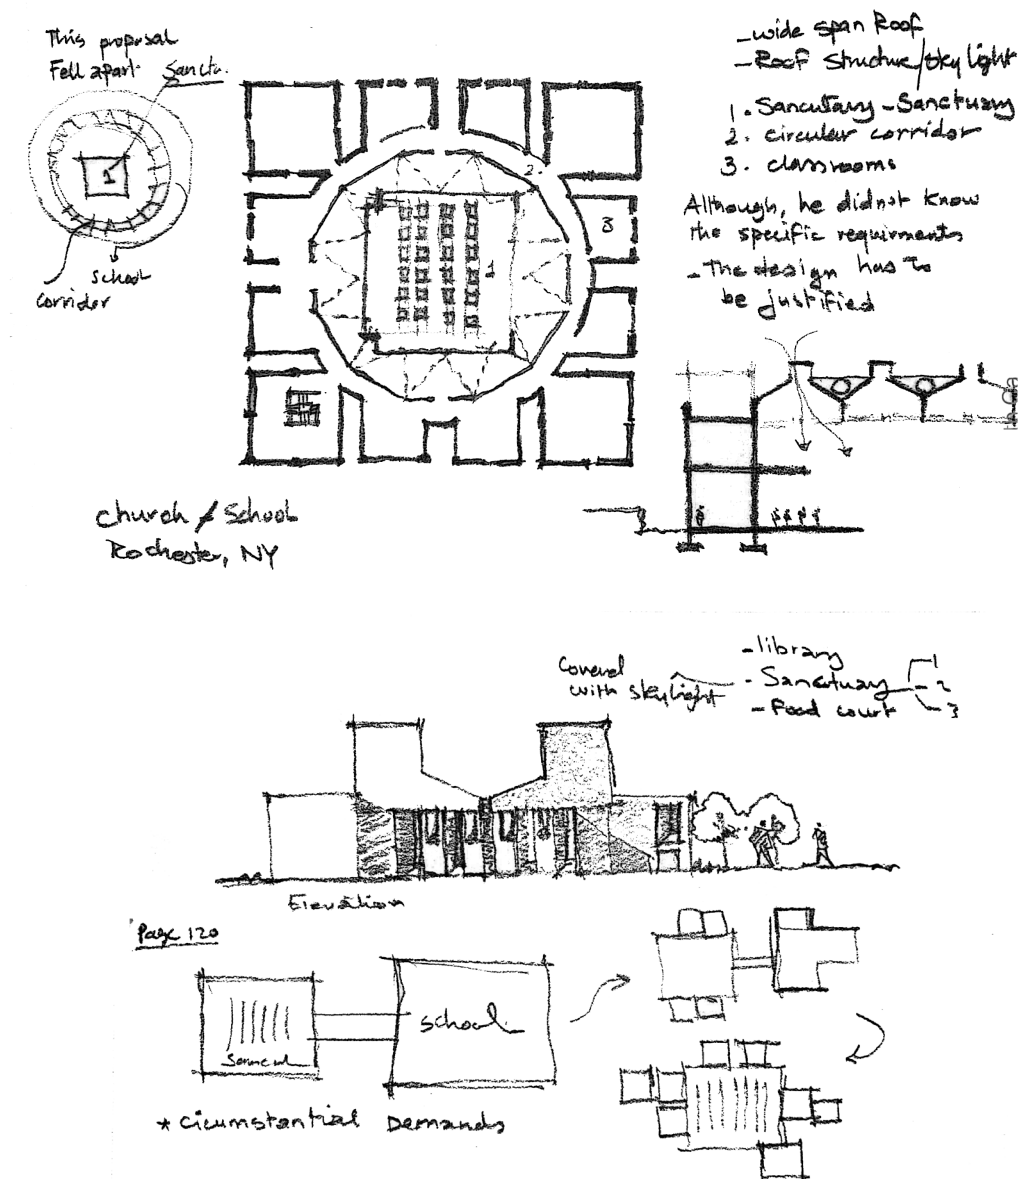 This proposal
Fell apart
Sanctu.
1
school
corridor
2
3
1
_wide span Roof
-Roof Structure/sky light
1. Sancutary - Sanctuary
2. circular corridor
3. classrooms
Although, he didnot know
the specific requirments
- The design has to
be justified
church / School
Rochester, NY
Covered
with skylight
- library
- Sanctuary
- Food court
1
2
3
Elevation
Page 120
School
* Cicumstantial Demands